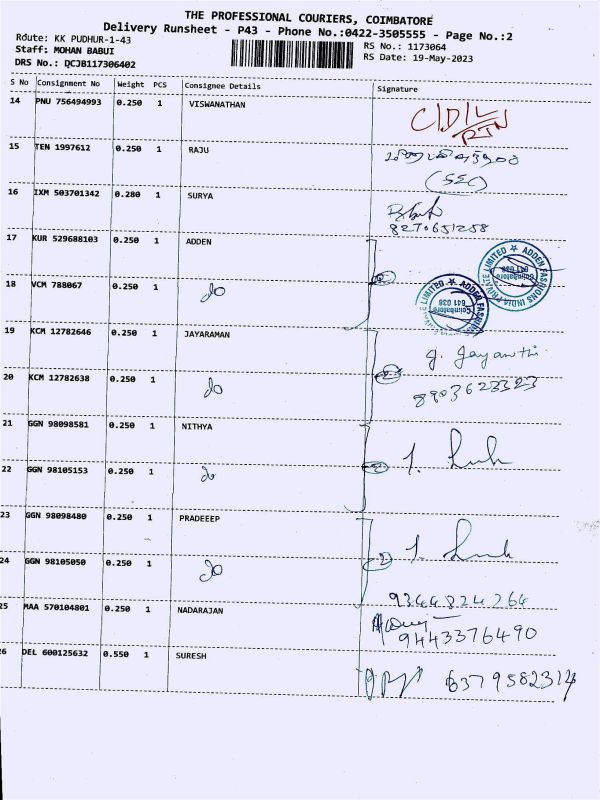 THE PROFESSIONAL COURIERS, COIMBATORE
Delivery Runsheet - P43 - Phone No.:0422-3505555 - Page No.:2
Route: KK PUDHUR-1-43
RS No.: 1173064
Staff: MOHAN BABUI
RS Date: 19-May-2023
DRS No.: DCJB117306402
S No Consignment No Weight PCS Consignee Details Signature
14 PNU 756494993 0.250 1 VISWANATHAN
RTN
15 TEN 1997612 0.250 1 RAJU
(SEC)
16 IXM 503701342 0.280 1 SURYA
8270651258
17 KUR 529688103 0.250 1 ADDEN
ADDEN FASHIONS INDIA PRIVATE LIMITED
Coimbatore
641 038
18 VCM 788067 0.250 1 do
19 KCM 12782646 0.250 1 JAYARAMAN
g. Jayanthi
20 KCM 12782638 0.250 1 do
8903623323
21 GGN 98098581 0.250 1 NITHYA
22 GGN 98105153 0.250 1 do
23 GGN 98098480 0.250 1 PRADEEEP
24 GGN 98105050 0.250 1 do
9344824264
25 MAA 570104801 0.250 1 NADARAJAN
9443376490
26 DEL 600125632 0.550 1 SURESH
6379582314